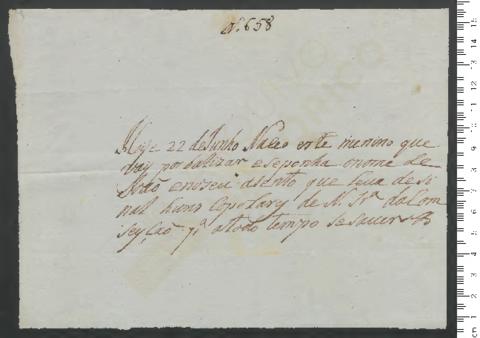 N. 658
Hoje 22 de Junho Naceo este menino que
vay por Batizar e se ponha o nome de
João e no seu asento que leva de si
nal huns Copotlary de N. Srª da Com
seyçaõ pª a todo tempo se saver